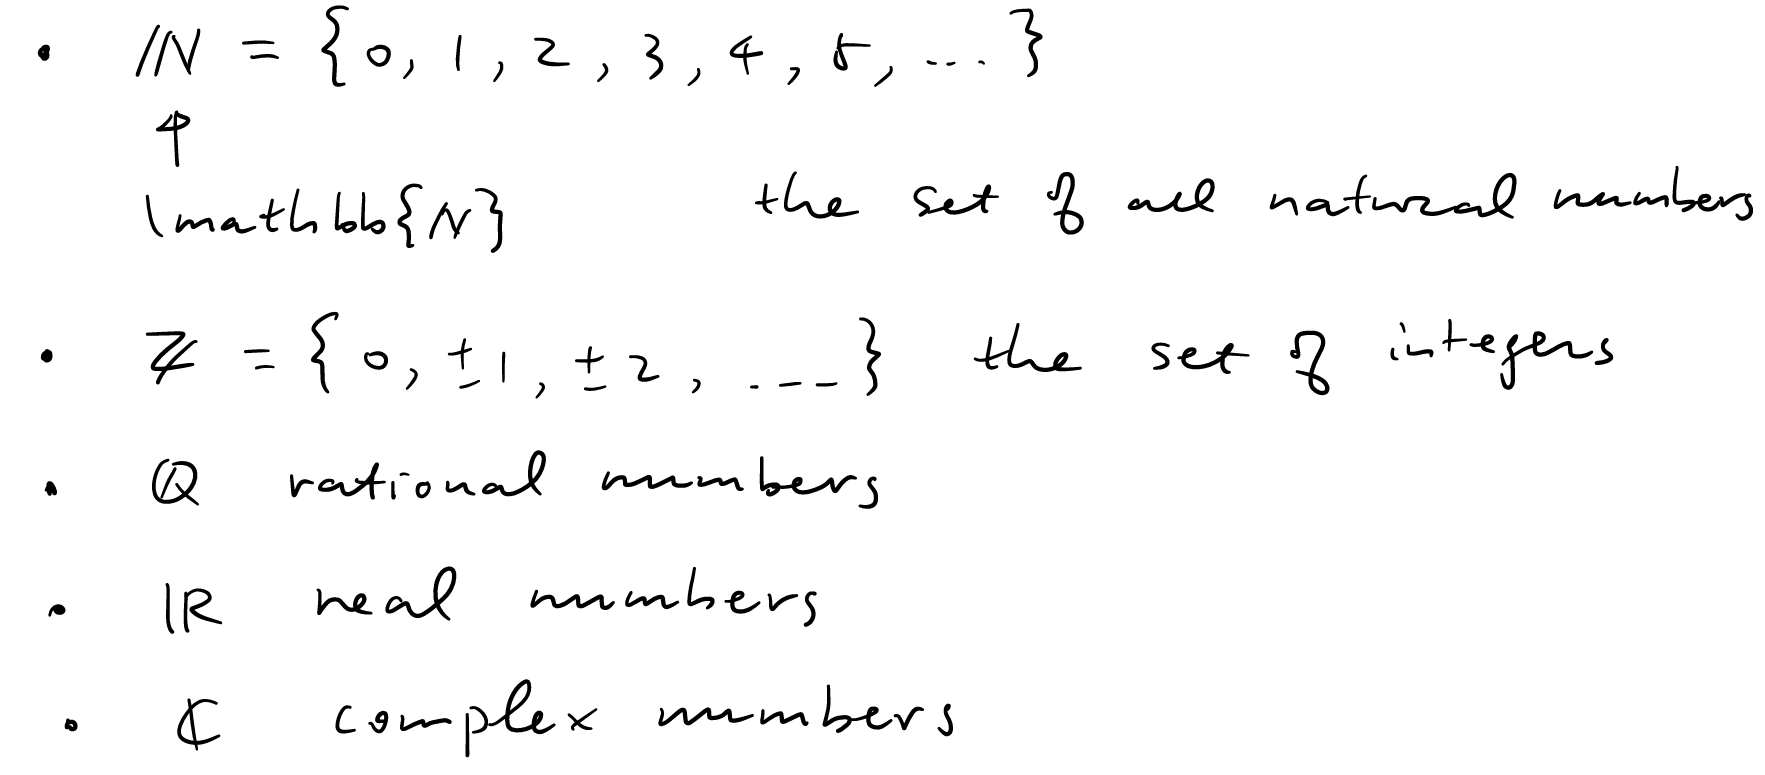 • ℕ = {0, 1, 2, 3, 4, 5, ...}
↑
\mathbb{N} the set of all natural numbers
• ℤ = {0, ±1, ±2, ....} the set of integers
• ℚ rational numbers
• ℝ real numbers
• ℂ complex numbers